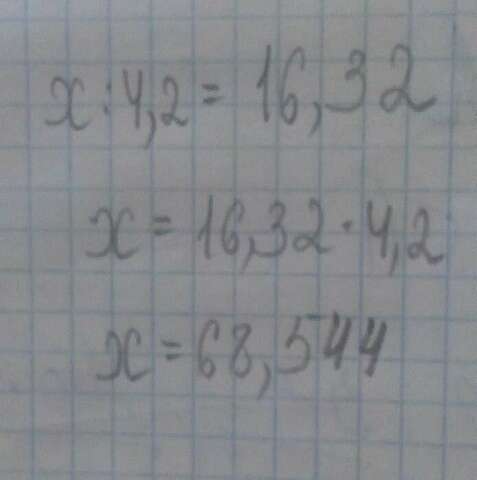 x : 4,2 = 16,32
x = 16,32 · 4,2
x = 68,544